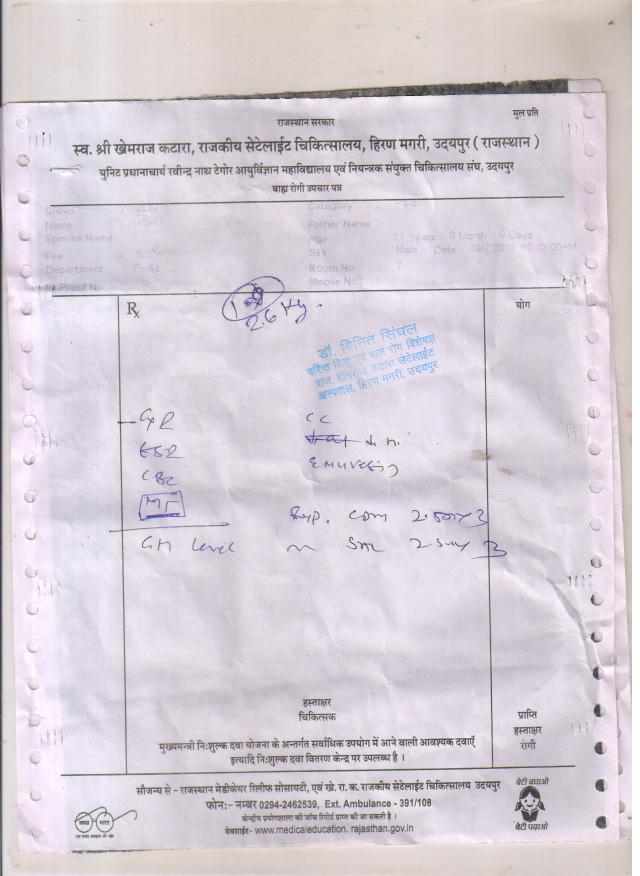 राजस्थान सरकार
मुल प्रति
स्व. श्री खेमराज कटारा, राजकीय सेटेलाईट चिकित्सालय, हिरण मगरी, उदयपुर ( राजस्थान )
युनिट प्रधानाचार्य रवीन्द्र नाथ टेगोर आयुर्विज्ञान महाविद्यालय एवं नियन्त्रक संयुक्त चिकित्सालय संघ, उदयपुर
बाह्य रोगी उपचार पत्र
Category
Name
Father Name
Spouse Name
Age 11 Years 0 Month 0 Days
Fee 5.00
Sex Male Date
Department Pedia
Room No 7
Id Proof No
Mobile No
Rx
योग
26 Kg.
डॉ. विनित सिंघल
वरिष्ठ शिशु एवं बाल रोग विशेषज्ञ
राज. खेमराज कटारा सेटेलाईट
अस्पताल, हिरण मगरी, उदयपुर
CC
ESR
CBC
MT
Syp.
GH Level
हस्ताक्षर
चिकित्सक
प्राप्ति
हस्ताक्षर
रोगी
मुख्यमन्त्री नि:शुल्क दवा योजना के अन्तर्गत सर्वाधिक उपयोग में आने वाली आवश्यक दवाएँ
इत्यादि नि:शुल्क दवा वितरण केन्द्र पर उपलब्ध है ।
सौजन्य से - राजस्थान मेडीकेयर रिलीफ सोसायटी, एवं खे. रा. क. राजकीय सेटेलाईट चिकित्सालय उदयपुर
फोन:- नम्बर 0294-2462539, Ext. Ambulance - 391/108
केन्द्रीय प्रयोगशाला की जाँच रिपोर्ट प्राप्त की जा सकती है ।
वेबसाईट- www.medicaleducation. rajasthan.gov.in
स्वच्छ भारत
एक कदम स्वच्छता की ओर
बेटी बचाओ
बेटी पढ़ाओ